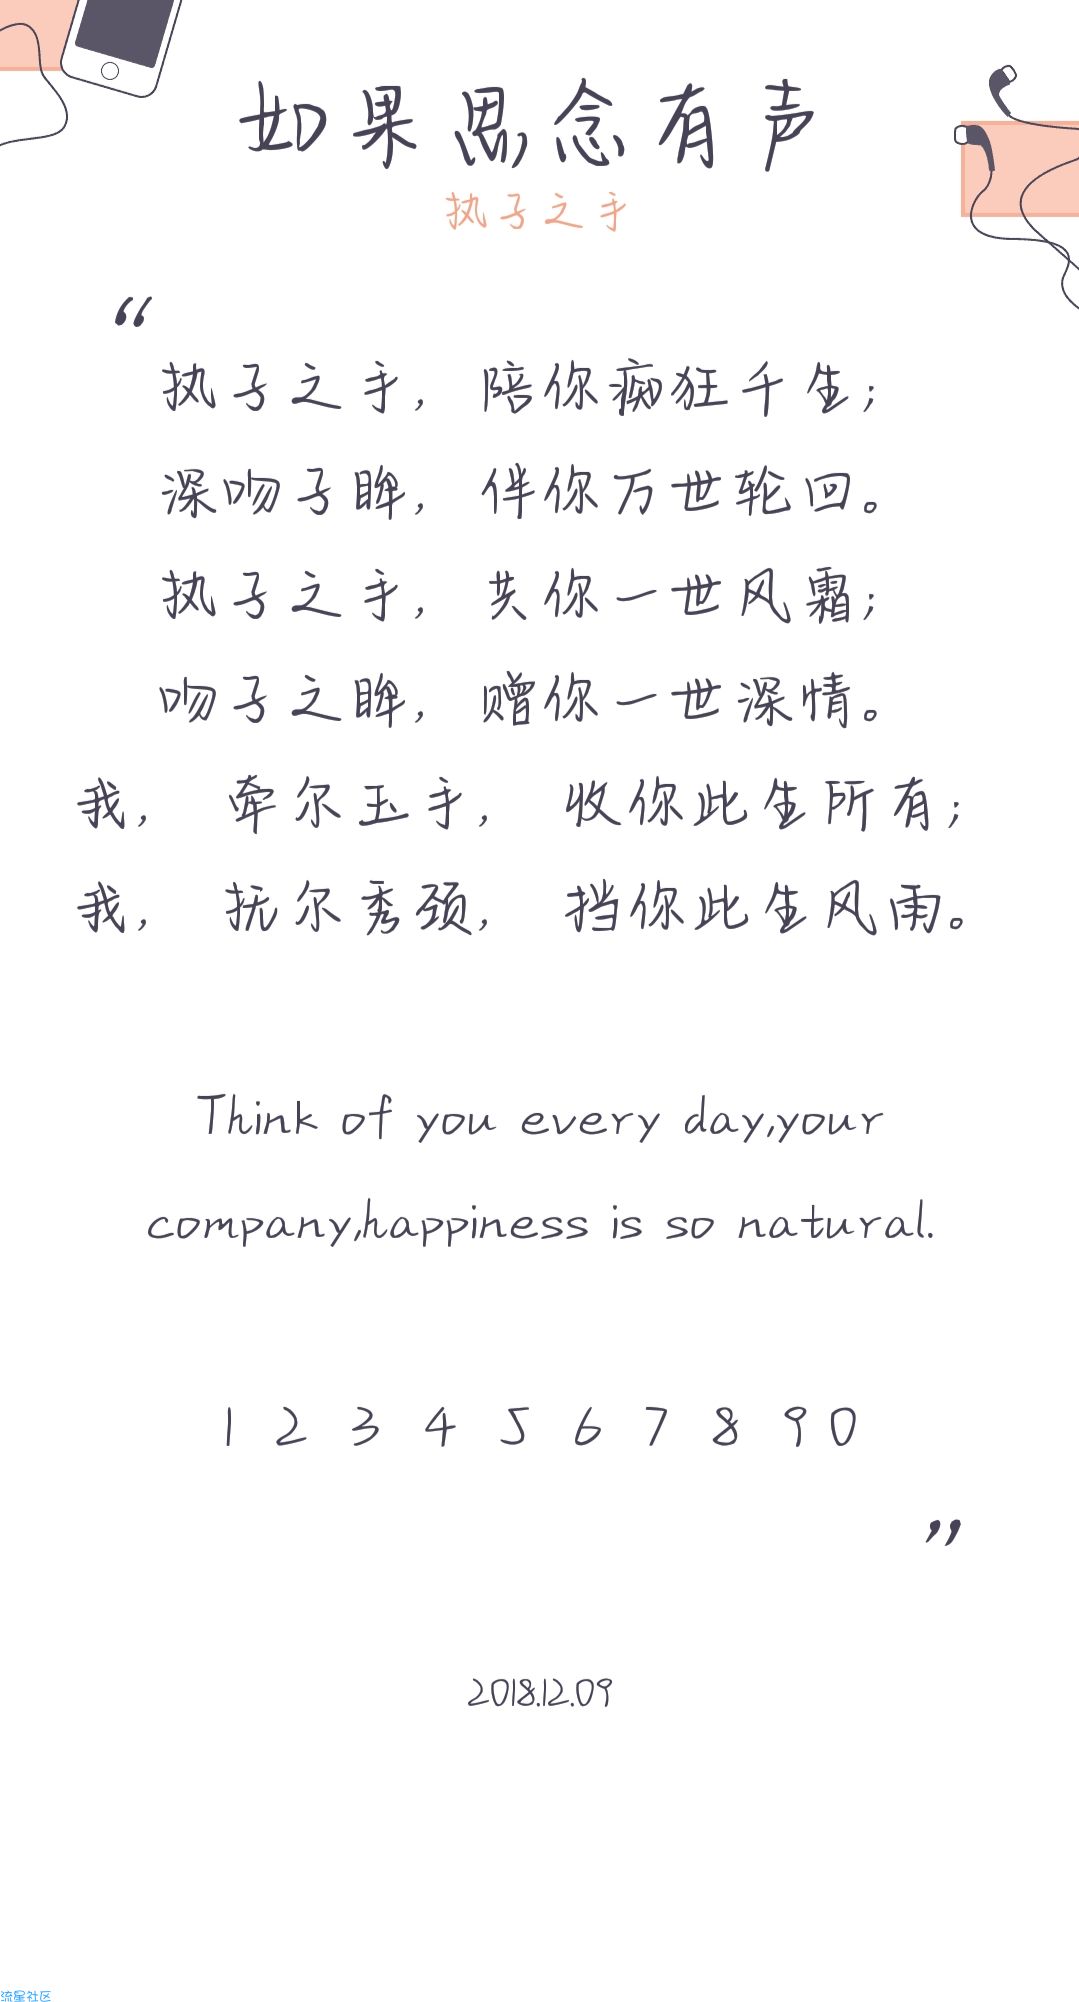 如果思念有声
执子之手
“
执子之手，陪你痴狂千生；
深吻子眸，伴你万世轮回。
执子之手，共你一世风霜；
吻子之眸，赠你一世深情。
我， 牵尔玉手， 收你此生所有；
我， 抚尔秀颈， 挡你此生风雨。
Think of you every day,your
company,happiness is so natural.
1 2 3 4 5 6 7 8 9 0
”
2018.12.09
流星社区